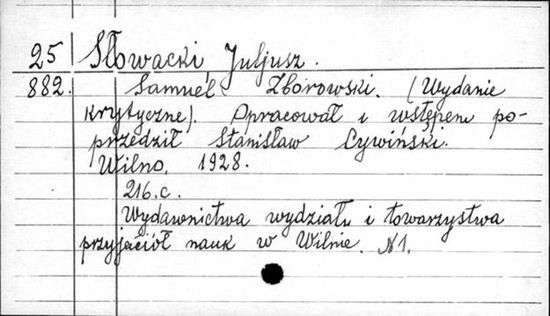 25 Słowacki, Juljusz.
882. Samuel Zborowski. (Wydanie
krytyczne). Opracował i wstępem po-
przedził Stanisław Cywiński.
Wilno, 1928.
216.c.
Wydawnictwa wydziału i towarzystwa
przyjaciół nauk w Wilnie. N1.